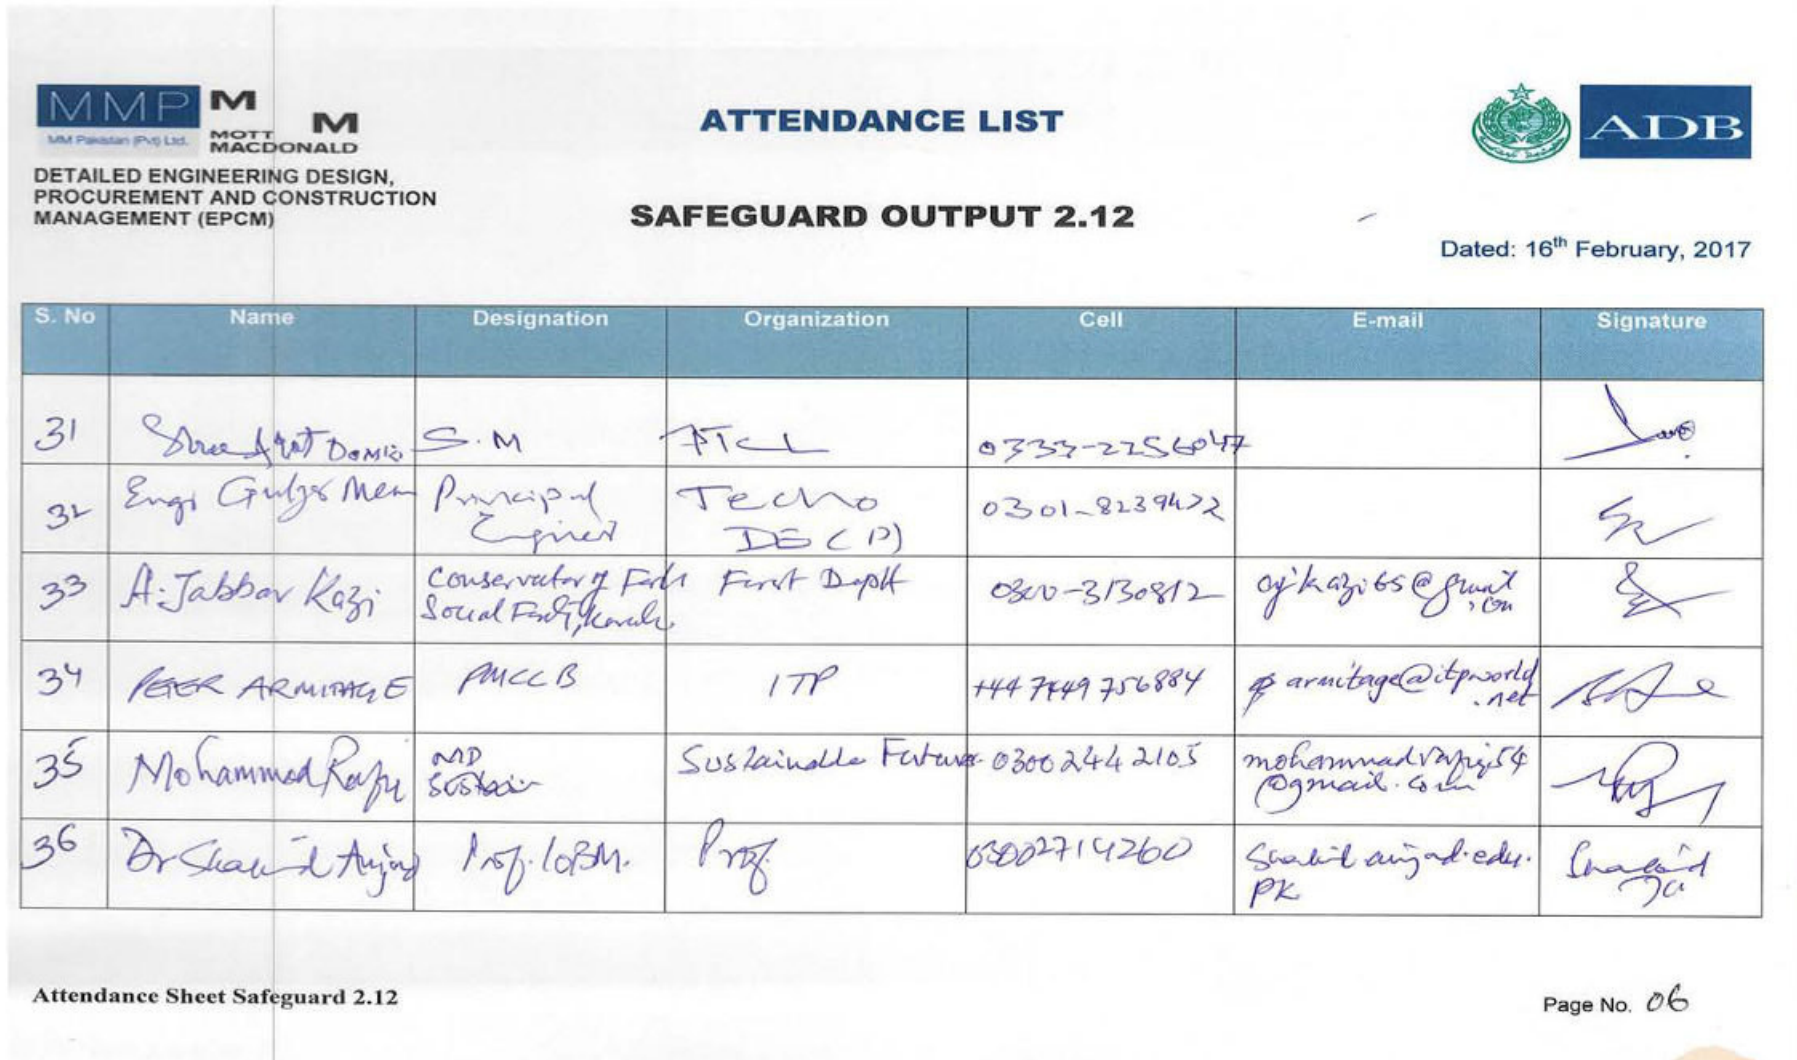 MMP M
MM Pakistan (Pvt) Ltd.
MOTT M
MACDONALD
DETAILED ENGINEERING DESIGN,
PROCUREMENT AND CONSTRUCTION
MANAGEMENT (EPCM)
ATTENDANCE LIST
SAFEGUARD OUTPUT 2.12
ADB
Dated: 16th February, 2017
S. No Name Designation Organization Cell E-mail Signature
31 S.M PTCL 0333-2256047
32 Engr Principal Techno 0301-8239422
Engineer DE (P)
33 A. Jabbar Kazi Conservator of Dept 0300-3130812 ajkazi65@gmail
Social .com
34 PETER ARMITAGE PMCCB ITP +44 7449 756884 parmitage@itpworld
.net
35 Mohammad Rafiq MD Sustainable Future 0300 2442105 mohammadrafiq54
@gmail.com
36 Dr Shahid Amjad Prof. IOBM. Prof. 03002714260 amjad.edu.
PK
Shahid
Attendance Sheet Safeguard 2.12
Page No. 06